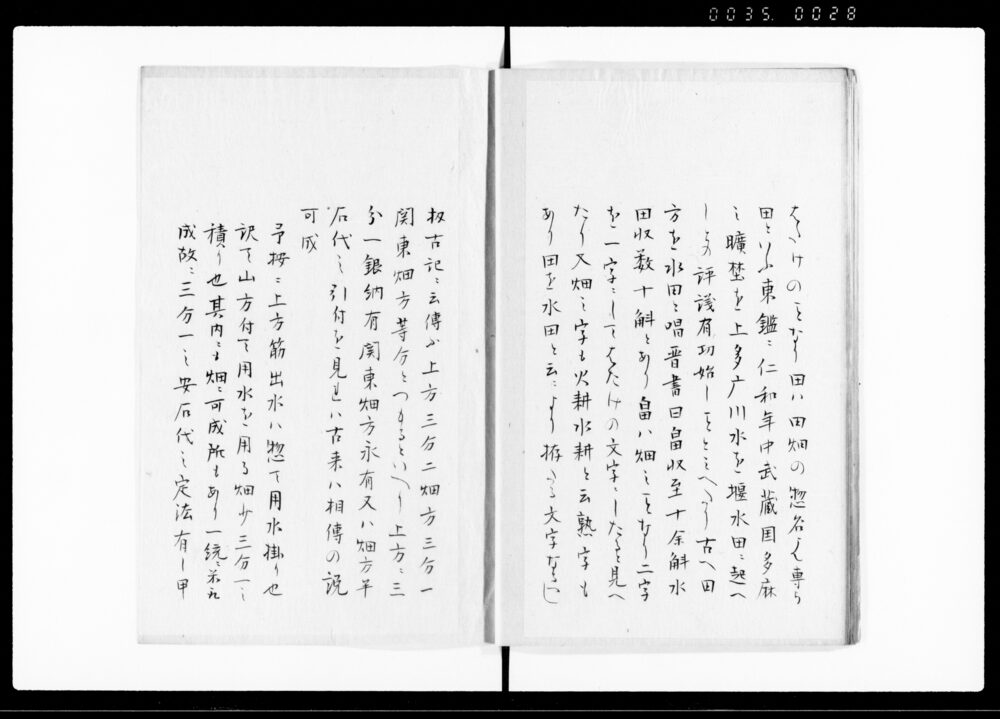 0035. 0028
はたけのことなり田ハ田畑の惣名也専ら
田といふ東鑑ニ仁和年中武蔵国多麻
之曠埜を上多广川水を堰水田ニ起へ
しとの評議有切始しことミへたり古へ田
方を水田と唱晋書曰畠収至十余斛水
田収数十斛とあり畠ハ畑之ことなり二字
を一字ニしてはたけの文字ニしたると見へ
たり又畑之字も火耕水耕と云熟字も
あり田を水田と云ニより拵たる文字なるへし
扨古記ニ云傳ふ上方三分二畑方三分一
関東畑方等分とつもるといへり上方ニ三
分一銀納有関東畑方永有又ハ畑方平
石代之引付を見れハ古来ハ相傳の説
可成
予按ニ上方筋出水ハ惣て用水掛り也
訳て山方付て用水を用る畑少三分一之
積り也其内ニも畑ニ可成所もあり一統ニ
成故ニ三分一之安石代之定法有し甲